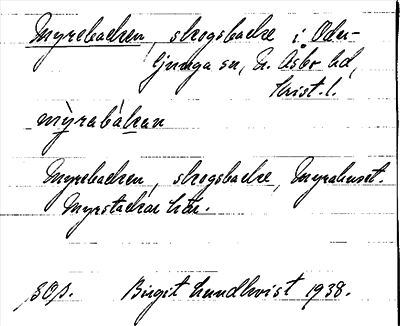 Myrebacken, skogsbacke i Oder-
ljunga sn, N. Åsbo hd,
Krist. l.
mỳrabàkan
Myrebacken, skogsbacke, Myrahuset.
Myrstackar här.
SOp. Birgit Lundkvist 1938.